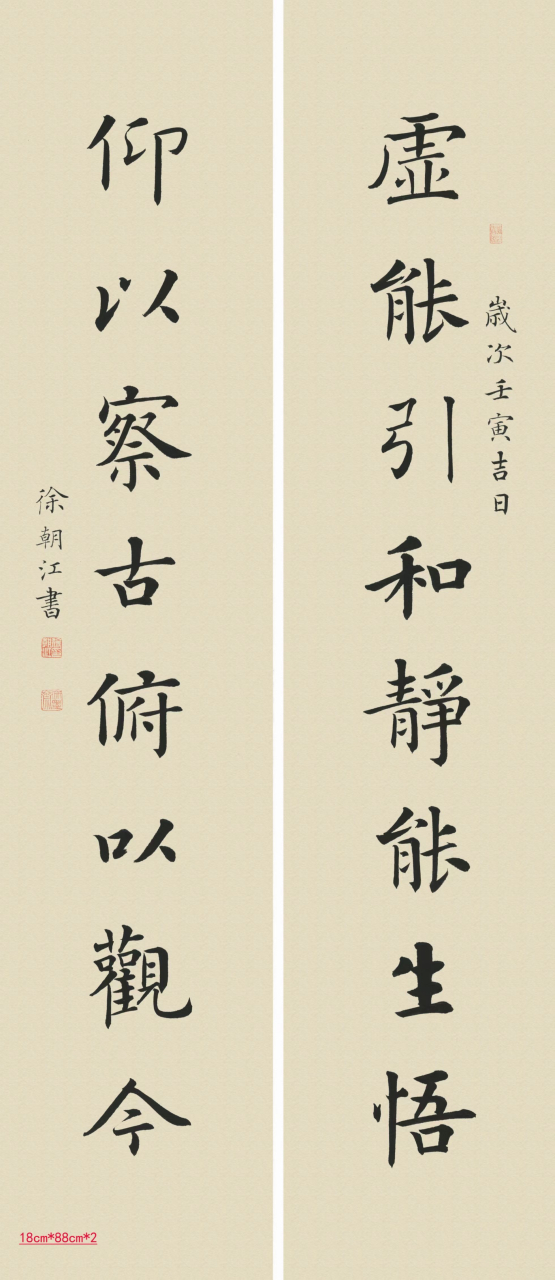 虛能引和靜能生悟
歲次壬寅吉日
仰以察古俯以觀今
徐朝江書
18cm*88cm*2